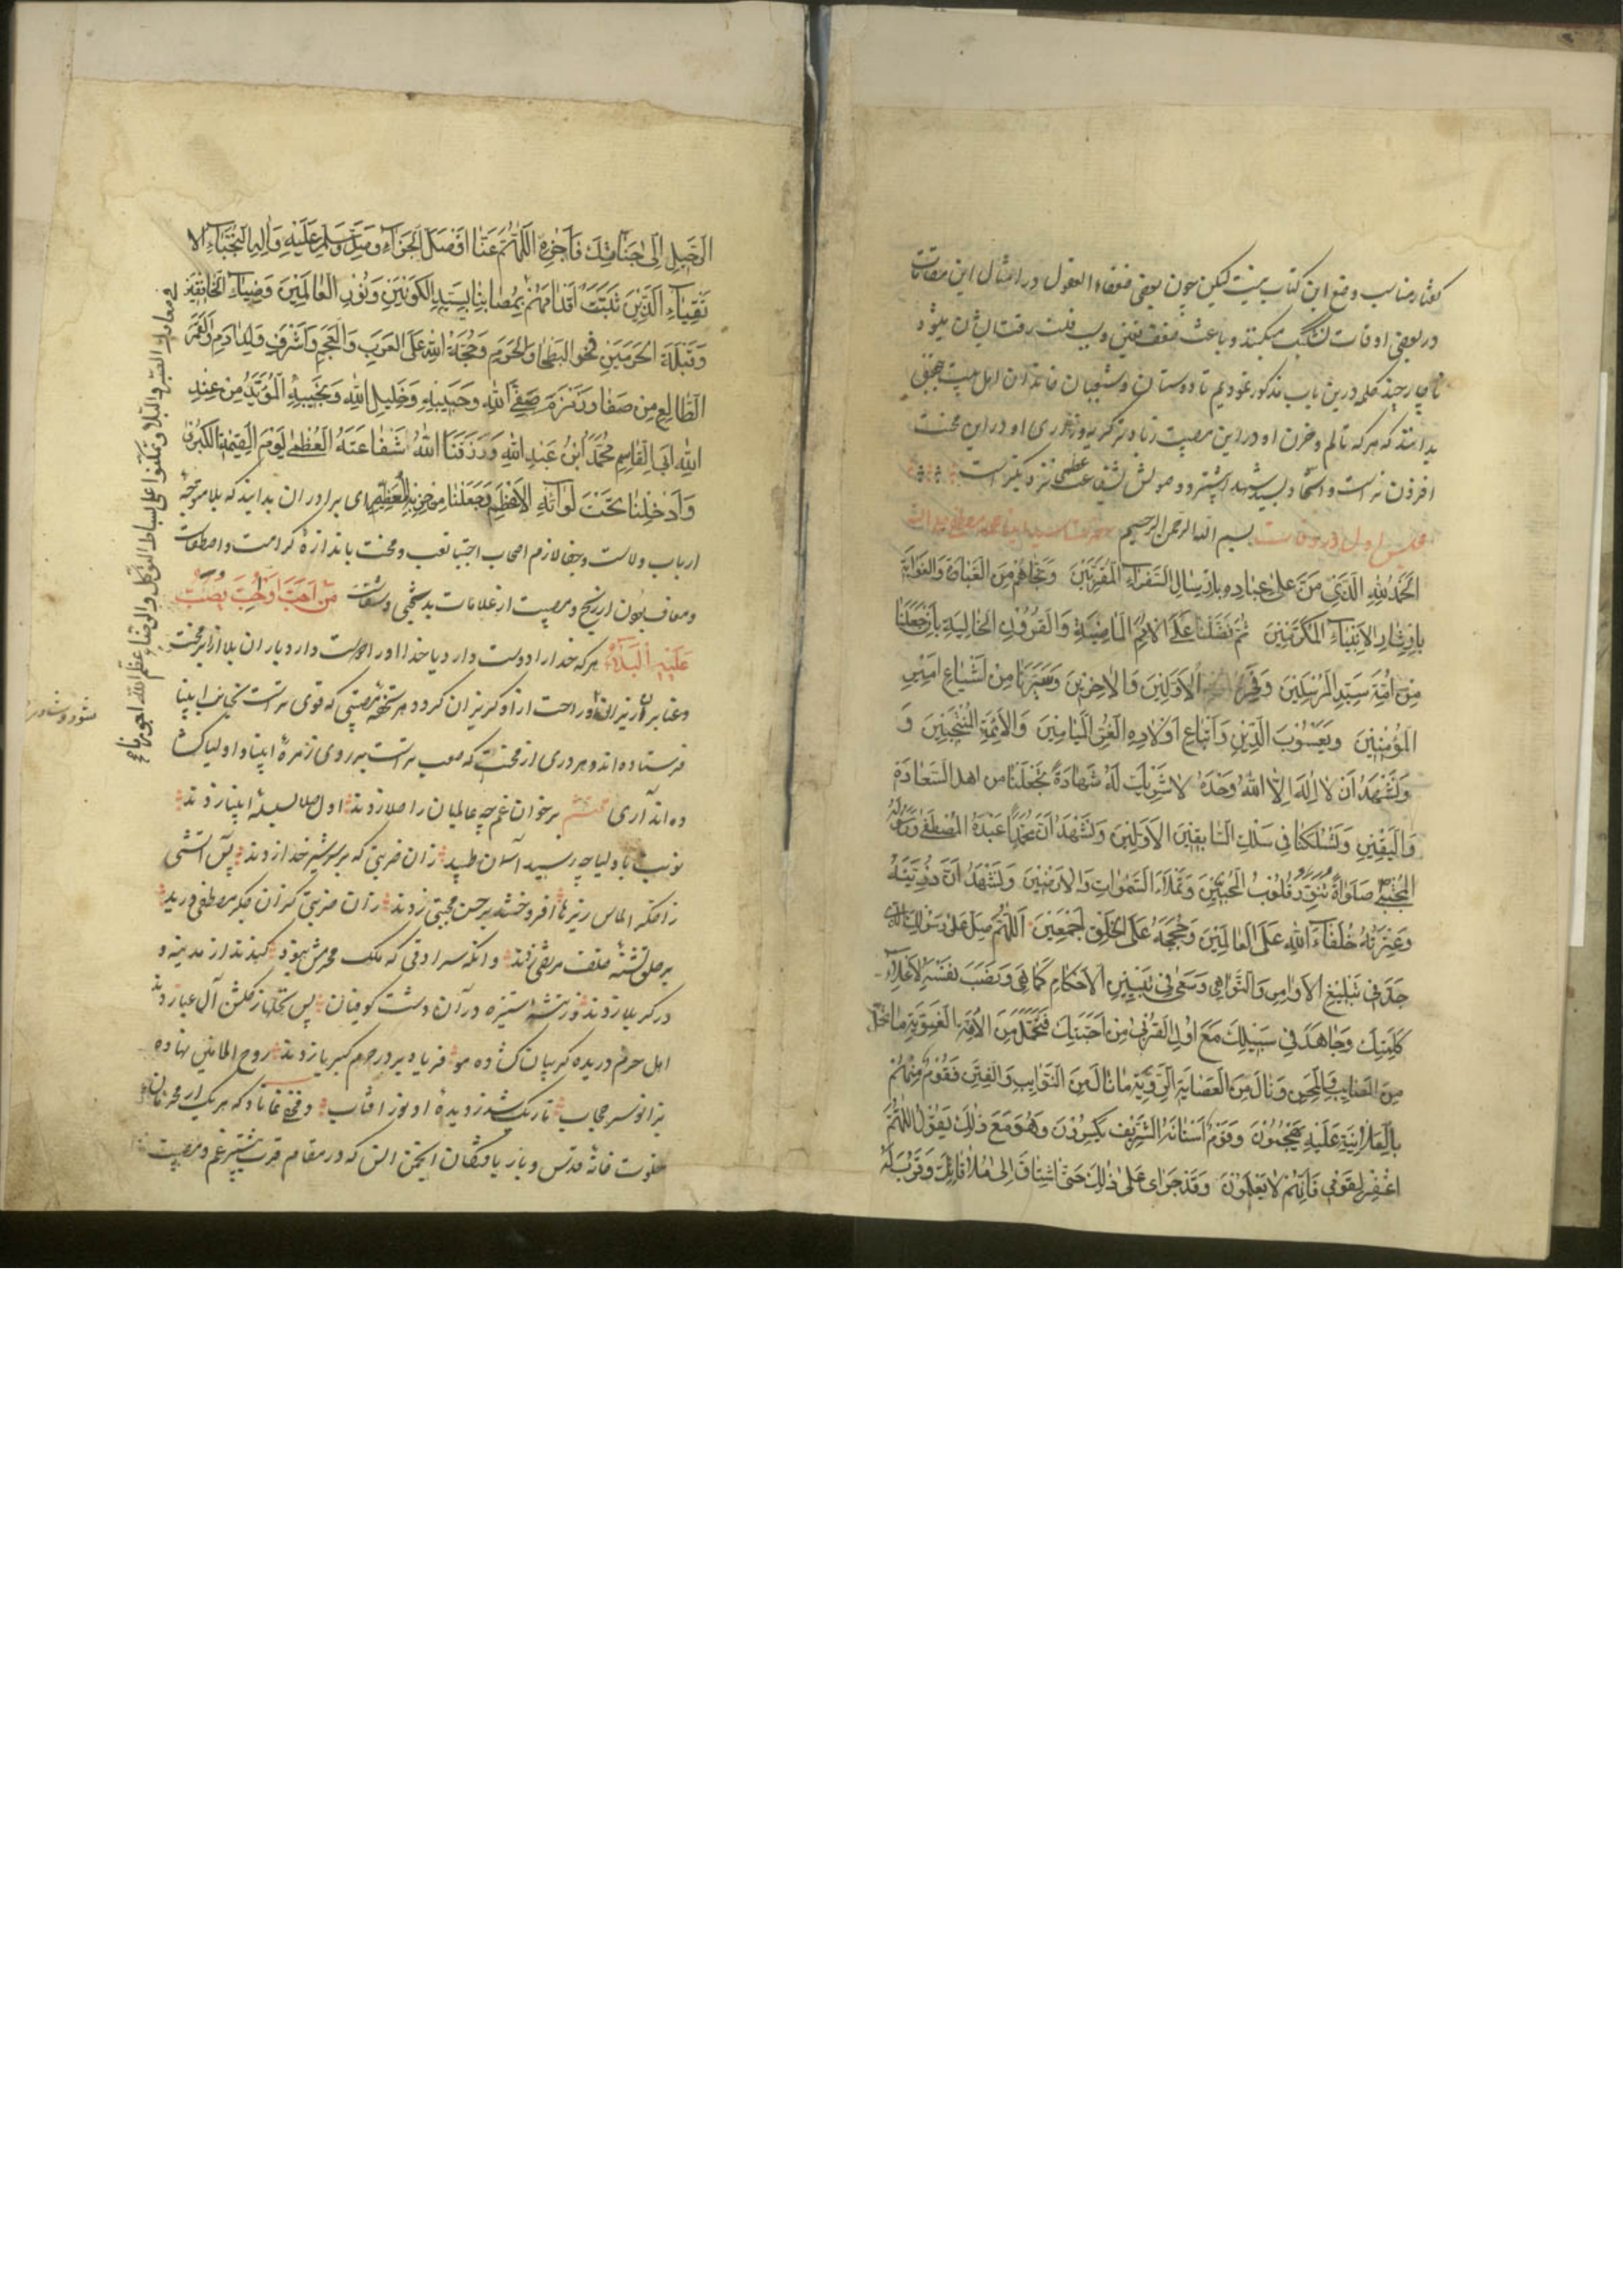 گفتار مناسب وضع این کتاب نیست لیکن چون بعضی ضعفاء العقول در امثال این مقامات
در بعضی اوقات تشکیک میکنند و باعث ضعف یقین و سبب قلت رقت ایشان میشود
ناچار چند کلمه درین باب مذکور نمودیم تا دوستان و شیعیان خاندان اهل بیت
بدانند که هر که تالم و حزن او در این مصیبت زیاده تر گریه و زاری او در این محنت
افزون تر است و اسناد بسید شهدا بیشتر و وصولش بشفاعت عظمی نزدیکتر است
مجلس اول در وفات بسم الله الرحمن الرحیم حضرت سید انبیا محمد مصطفی صلی الله
اَلْحَمْدُ لِلّهِ الَّذی مَنَّ عَلی عِبادِهِ بِاِرْسالِ السُّفَراءِ الْمُقَرَّبینَ وَنَجّاهُمْ مِنَ الْغَباوَةِ وَالْغَوایَةِ
بِاِیثارِ الاَنْبِیاءِ الْمُکَرَّمینَ ثُمَّ فَضَّلَنا عَلَی الاُمَمِ الْماضِیَةِ وَالْقُرُونِ الْخالِیَةِ بِاَنْ جَعَلَنا
مِنْ اُمَّةِ سَیِّدِ الْمُرْسَلینَ وَفَخْرِ الاَوَّلینَ وَالاخِرینَ وَصَیَّرَنا مِنْ اَشْیاعِ اَمیرِ
الْمُؤْمِنینَ وَیَعْسُوبِ الدّینِ وَاَتْباعِ اَوْلادِهِ الْغُرِّ الْمَیامینَ وَالاَئِمَّةِ الْمُنْتَجَبینَ وَ
وَنَشْهَدُ اَنْ لا اِلهَ اِلاَّ اللّهُ وَحْدَهُ لا شَریکَ لَهُ شَهادَةً تَجْعَلُنا مِن اهل السَّعادَةِ
وَالْیَقینِ وَتَسْلُکُنا فی سِلْکِ السّابِقینَ الاَوَّلینَ وَنَشْهَدُ اَنَّ مُحَمَّداً عَبْدُهُ الْمُصْطَفی وَرَسُولُهُ
الْمُجْتَبی صَلَواةً تُنَوِّرُ قُلُوبَ الْمُحِبّینَ وَتَمْلاَءُ السَّمواتِ وَالاَرَضینَ وَنَشْهَدُ اَنَّ ذُرِّیَّتَهُ
وَعِتْرَتَهُ خُلَفاءُ اللّهِ عَلَی الْعالَمینَ وَحُجَجُهُ عَلَی الْخَلْقِ اَجْمَعینَ اَللّهُمَّ صَلِّ عَلی رَسُولِکَ الَّذی
جَدَّ فی تَبْلیغِ الاَوامِرِ وَالنَّواهی وَسَعی فی تَبْیینِ الاَحْکامِ کَما هِیَ وَنَصَبَ نَفْسَهُ لاِعْلاءِ
کَلِمَتِکَ وَجاهَدَ فی سَبیلِکَ مَعَ اُولِی الْقُرْبی مِنْ اَحِبَّتِکَ فَتَحَمَّلَ مِنَ الاُمَّةِ الْغَوِیَّةِ ما تَحَمَّلَ
مِنَ الْمَصایِبِ وَالْمِحَنِ وَنالَ مِنَ الْعِصابَةِ ما نالَ مِنَ النَّوایِبِ وَالْفِتَنِ فَقَوْمٌ مِنْهُمْ
بِالْعَلانِیَةِ عَلَیْهِ یَهْجُمُونَ وَقَوْمٌ اَسْنانَهُ الشَّریفَ یَکْسِرُونَ وَهُوَ مَعَ ذلِکَ یَقُولُ اللّهُمَّ
اغْفِرْ لِقَوْمی فَاِنَّهُمْ لا یَعْلَمُونَ وَقَدْ جَری عَلی ذلِکَ حَتّی اشْتاقَ اِلی مُلاقاتِکَ وَقَرُبَ لَهُ
الرَّحیلُ اِلی جَنابِکَ فَاَجْزِهِ اللّهُمَّ عَنّا اَفْضَلَ الْجَزاءِ وَصَلِّ وَسَلِّمْ عَلَیْهِ وَالِهِ النُّجَباءِ الا
تقِیاءِ الَّذینَ ثَبَتَتْ اَقْدامُهُمْ بِمُصابِنا بِسَیِّدِ الْکَوْنَیْنِ وَنُورِ الْعالَمینَ وَضِیاءِ الْخافِقَیْنِ
وَقِبْلَةِ الْحَرَمَیْنِ فَخْرِ الْبَطْحا وَالْحَرَمِ وَحُجَّةِ اللّهِ عَلَی الْعَرَبِ وَالْعَجَمِ وَاَشْرَفِ وُلْدِ ادَمَ وَالْقَمَرِ
الطّالِعِ مِنْ صَفا وَزَمْزَمَ صَفِیِّ اللّهِ وَحَبیبِهِ وَخَلیلِ اللّهِ وَنَجیبِهِ الْمُؤَیَّدِ مِنْ عِنْدِ
اللّهِ اَبی الْقاسِمِ مُحَمَّدِ ابْنِ عَبْدِ اللّهِ وَرَزَقَنَا اللّهُ شَفاعَتَهُ الْعُظْمی یَوْمَ الْقِیمَةِ الْکُبْری
وَاَدْخَلَنا تَحْتَ لِوائِهِ الاَعْظَمِ وَجَعَلَنا مِنْ حِزْبِهِ الْعَظیمِ ای برادران بدانید که بلا متوجه
ارباب ولاست و جفا لازم اصحاب اجتبا تعب و محنت باندازه کرامت و اصطفاست
و معاف بودن از رنج و مصیبت از علامات بدبختی و شقاوت مَنْ اَحَبَّنا اَوْ اُحِبَّ یُصَبُّ
عَلَیْهِ الْبَلاءُ هر که خدا را دوست دارد یا خدا او را دوست دارد باران بلا از ابر محنت
و عنا بر او ریزان و راحت ازو گریزان گردد هر تحفه مصیبتی که قوی تر است بجانب انبیا
فرستاده اند و هر دری از محنت که صعب تر است بر روی زمره انبیا و اولیا گشا
ده اند آری محتشم بر خوان غم چه عالمیان را صلا زدند اول صلا بسلسله انبیا زدند
نوبت باولیا چه رسید آسمان طپید زان ضربتی که بر سر شیر خدا زدند پس آتشی
ز اخگر الماس ریزها افروختند بر حسن مجتبی زدند زان ضربتی کزان جگر مصطفی درید
بر حلق تشنه خلف مرتضی زدند وانگه سرادقی که ملک محرمش نبود کندند از مدینه و
در کربلا زدند وز تیشه ستیزه در آن دشت کوفیان بس نخلها ز گلشن آل عبا زدند
اهل حرم دریده گریبان گشاده مو فریاد بر در حرم کبریا زدند روح الامین نهاده
بزانو سر حجاب تاریک شد ز دیدن او نور افتاب و مخفی نماناد که هر یک از محرمان
خلوت خانه قدس و باریافتگان انجمن انس که در مقام قرب بیشتر غم و مصیبت